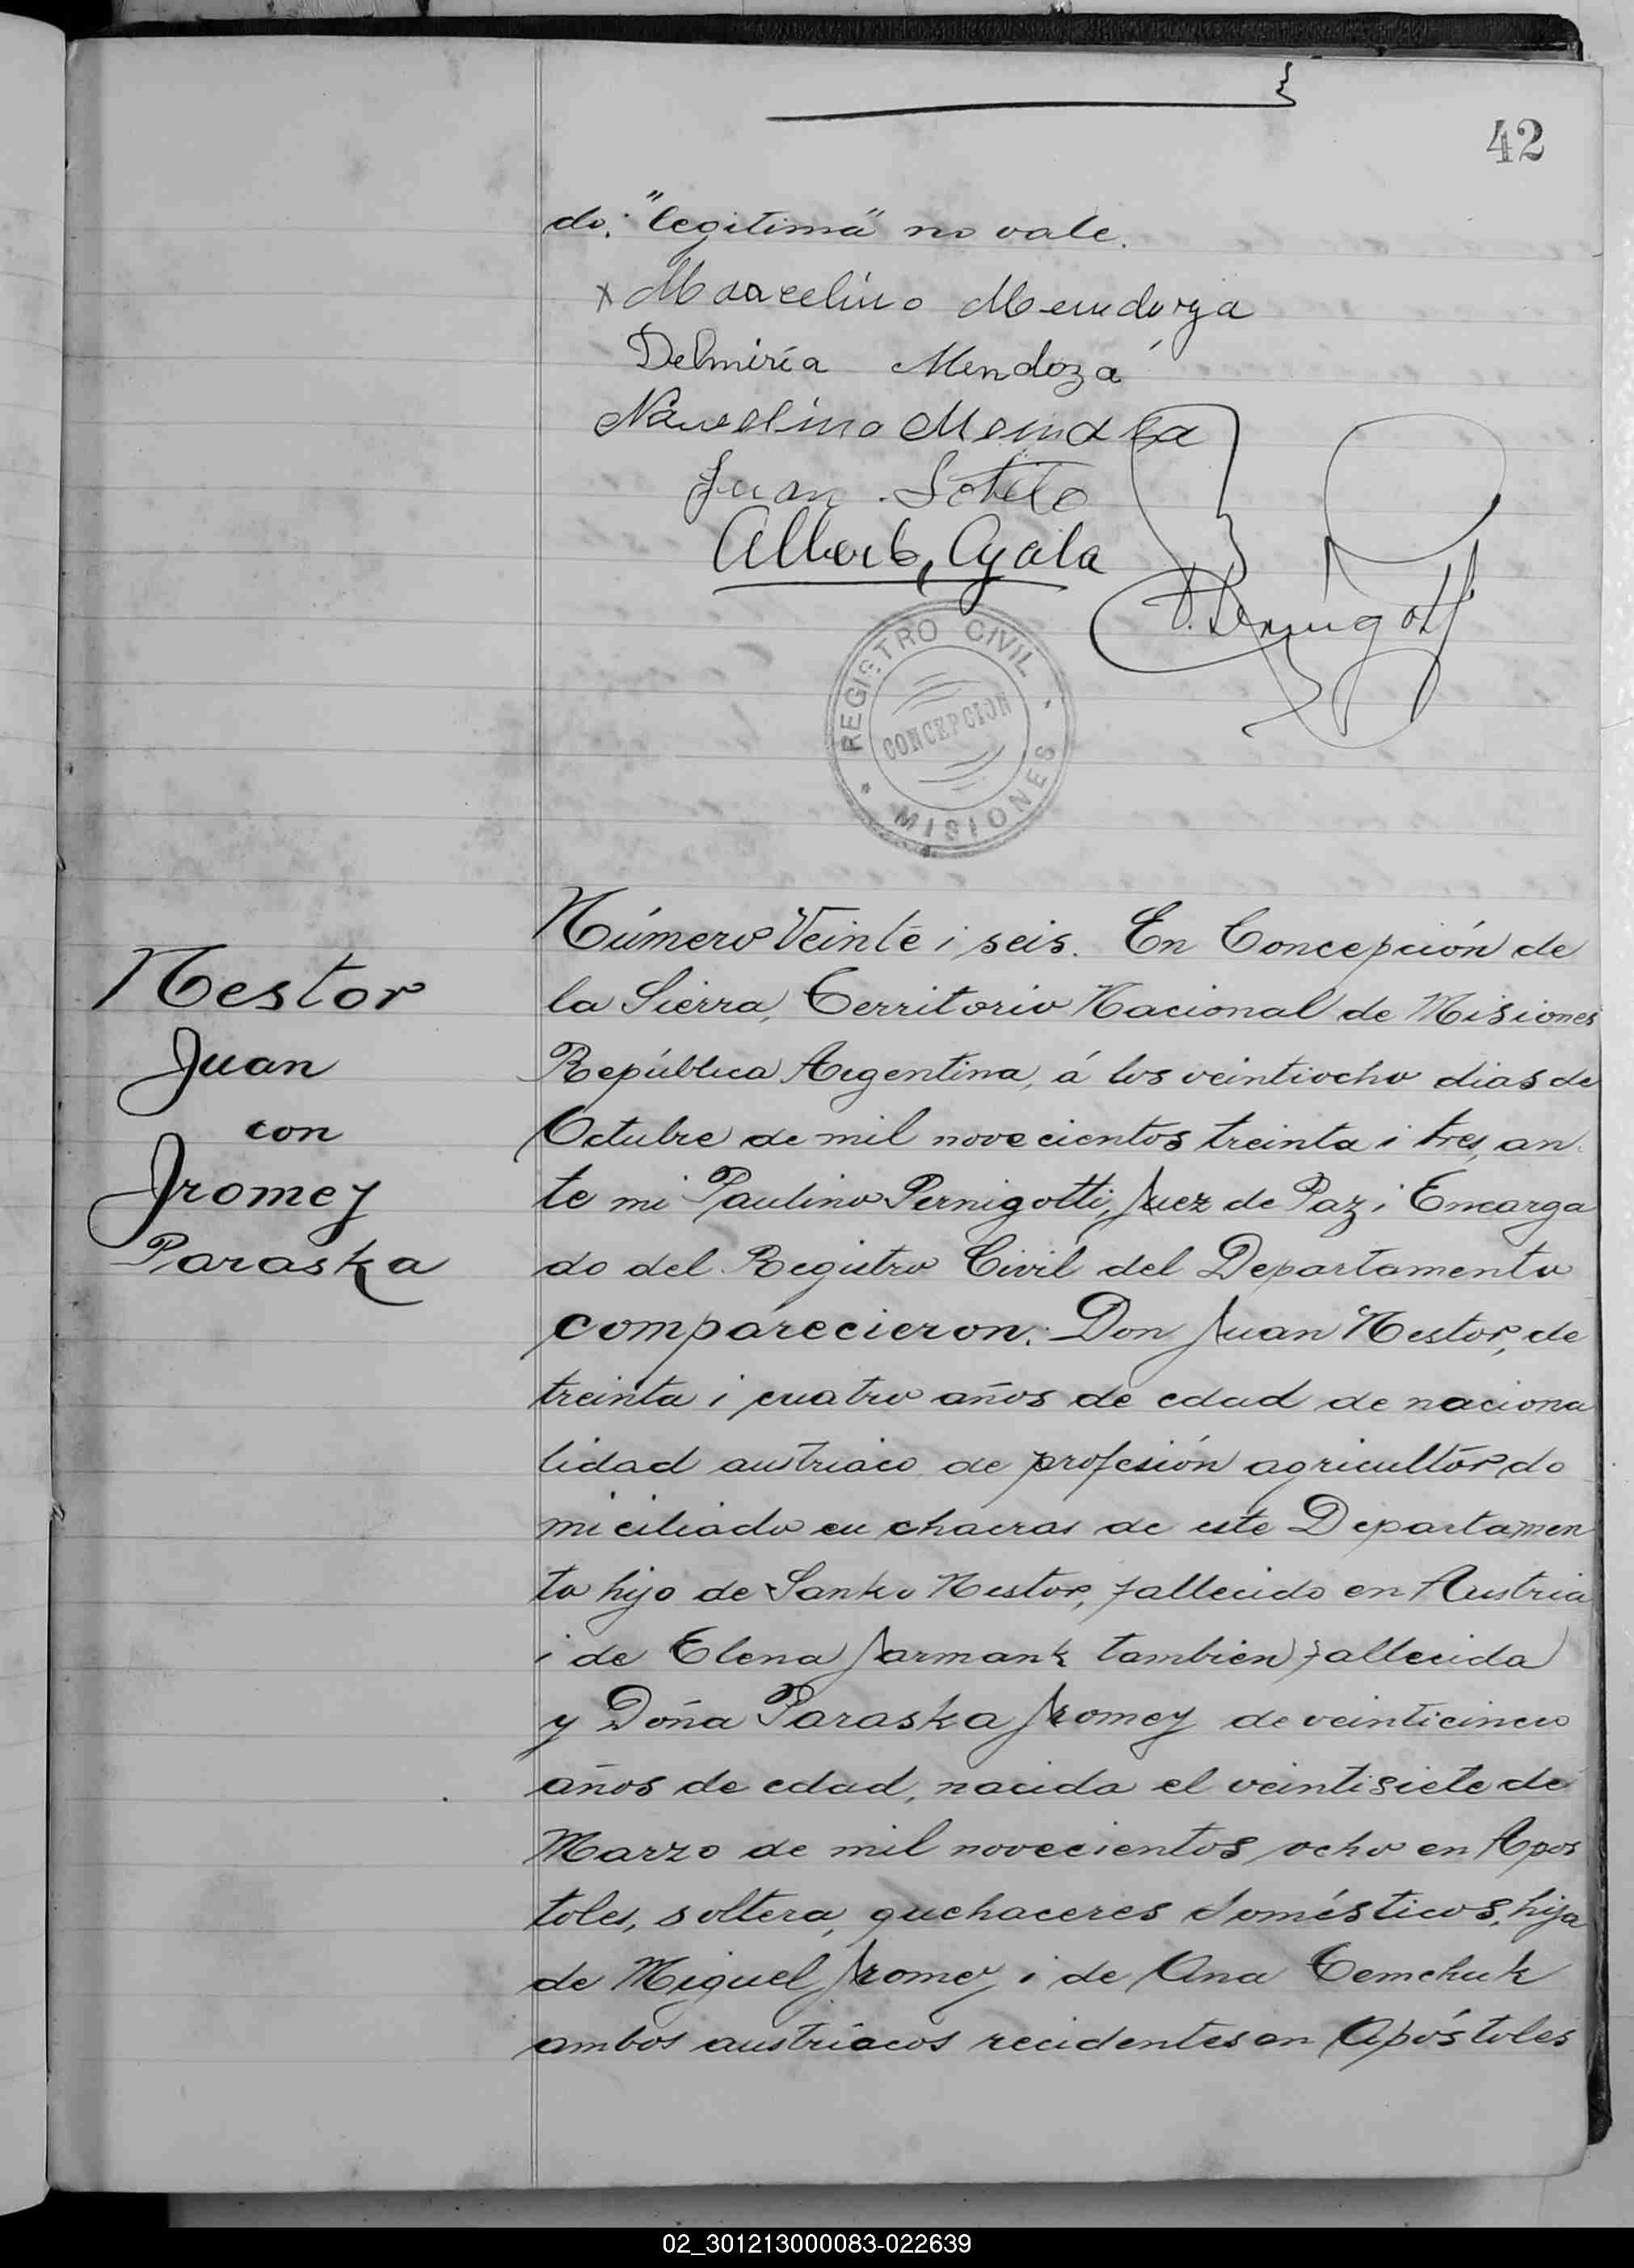 42
do: "legitima" no vale.
x Marcelino Mendoza
Delmiría Mendoza
Marcelino Mendoza
Juan Sotelo
Alberto Ayala
P. Pernigotti
REGISTRO CIVIL
CONCEPCION
MISIONES
Nestor
Juan
con
Jromey
Paraska
Número Veinte i seis. En Concepción de
la Sierra, Territorio Nacional de Misiones
República Argentina, á los veintiocho dias de
Octubre de mil novecientos treinta i tres, an-
te mi Paulino Pernigotti, Juez de Paz i Encarga
do del Registro Civil del Departamento
comparecieron: Don Juan Nestor, de
treinta i cuatro años de edad de naciona
lidad austriaco de profesión agricultor, do
miciliado en chacras de este Departamen
to hijo de Sanko Nestor, fallecido en Austria
i de Elena Jarmank tambien fallecida
y Doña Paraska Jromey de veinticinco
años de edad, nacida el veintisiete de
Marzo de mil novecientos ocho en Apos
toles, soltera, quehaceres domésticos, hija
de Miguel Jromey i de Ana Temchuk
ambos austríacos recidentes en Apóstoles
02_301213000083-022639